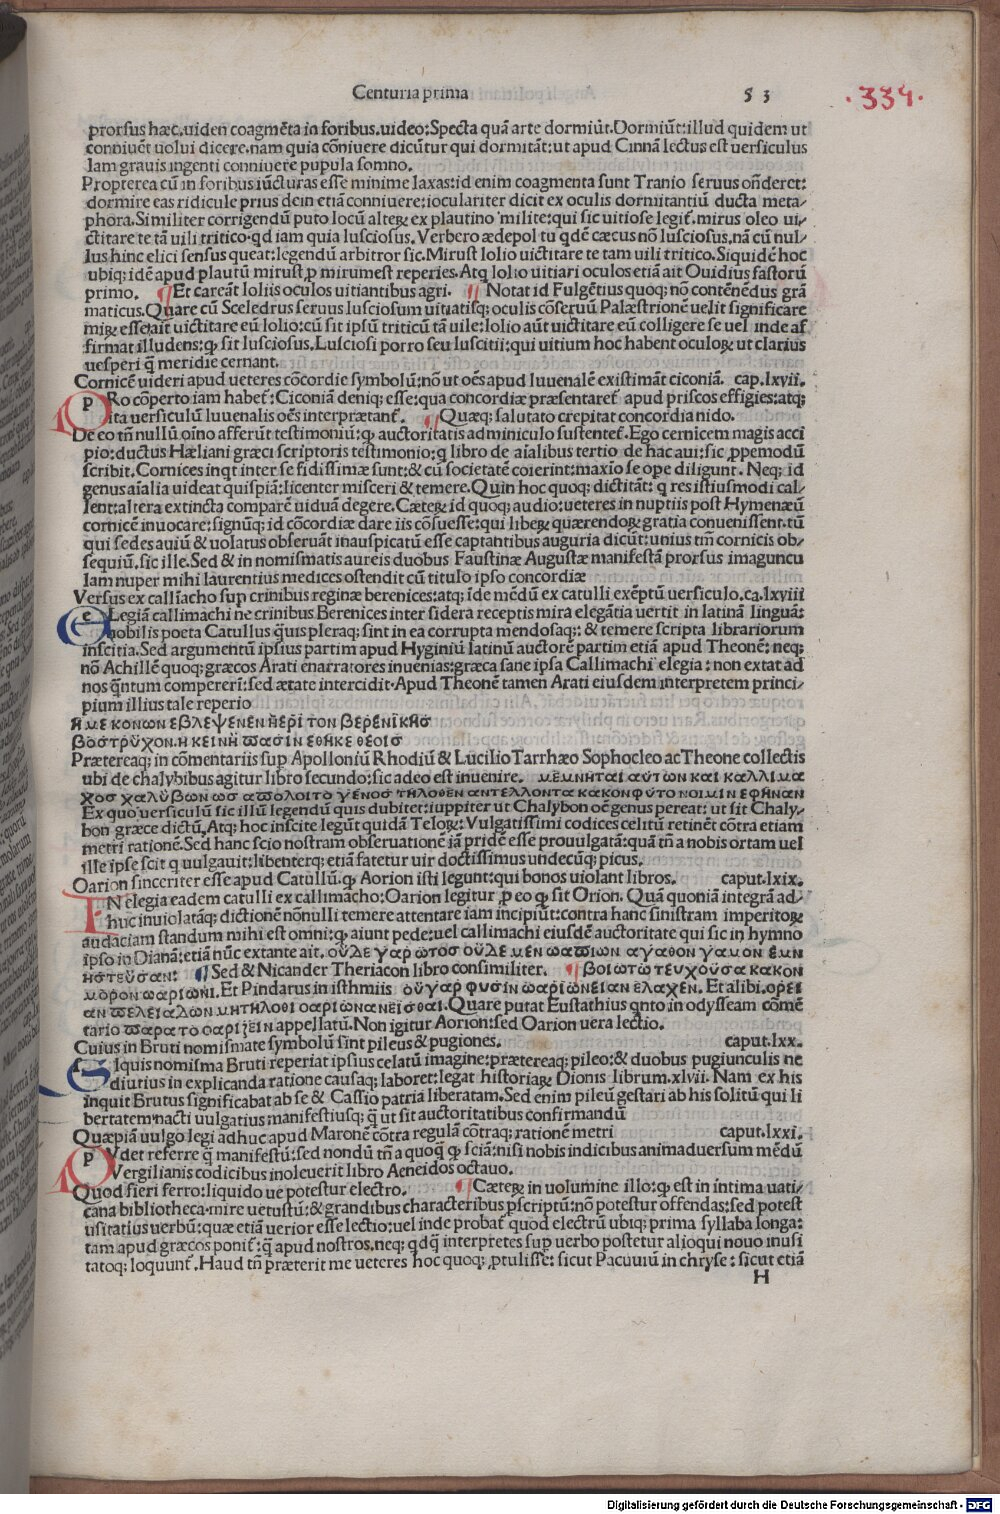 Centuria prima 53
.334.
prorsus hæc.uiden coagmēta in foribus.uideo:Specta quā arte dormiūt.Dormiūt:illud quidem ut
conniuēt uolui dicere.nam quia cōniuere dicūtur qui dormitāt:ut apud Cinnā lectus est uersiculus
Iam grauis ingenti conniuere pupula somno.
Propterea cū in foribus iūcturas esse minime laxas:id enim coagmenta sunt Tranio seruus oñderet:
dormire eas ridicule prius dein etiā conniuere:ioculariter dicit ex oculis dormitantiū ducta meta/
phora.Similiter corrigendū puto locū alteꝝ ex plautino milite:qui sic uitiose legiť.mirus oleo ui/
ctitare te tā uili tritico.qd iam quia lusciosus.Verbero ædepol tu qdē cæcus nō lusciosus.nā cū nul/
lus hinc elici sensus queat:legendū arbitror sic.Mirust lolio uictitare te tam uili tritico.Siquidē hoc
ubiq;idē apud plautū mirust ꝑ mirumest reperies.Atq; lolio uitiari oculos etiā ait Ouidius fastorū
primo. ¶Et careāt loliis oculos uitiantibus agri. ¶ Notat id Fulgētius quoq; nō contēnēdus grā
maticus.Quare cū Sceledrus seruus lusciosum uitiatisq; oculis cōseruū Palæstrionē uelit significare
miꝝ esse ait uictitare eū lolio:cū sit ipsū triticū tā uile:lolio aūt uictitare eū colligere se uel inde af
firmat illudens:ꝙ sit lusciosus.Lusciosi porro seu luscitii:qui uitium hoc habent oculoꝝ ut clarius
uesperi q̄ meridie cernant.
Cornicē uideri apud ueteres cōcordie symbolū:nō ut oēs apud Iuuenalē existimāt ciconiā. cap.lxvii.
pRo cōperto iam habeť:Ciconiā deniq; esse:qua concordiæ præsentareť apud priscos effigies:atq;
ita uersiculū Iuuenalis oēs interprætanť. ¶Quæq; salutato crepitat concordia nido.
De eo tñ nullū oīno afferūt testimoniū:ꝙ auctoritatis adminiculo sustenteť.Ego cernicem magis acci
pio:ductus Hæliani græci scriptoris testimonio:q libro de aīalibus tertio de hac aui:sic ꝓpemodū
scribit.Cornices inqt inter se fidissimæ sunt:& cū societatē coierint:maxīo se ope diligunt. Neq; id
genus aīalia uideat quispiā:licenter misceri & temere.Quin hoc quoq; dictitāt: q res istiusmodi cal/
lent:altera extincta comparē uiduā degere.Cæteꝝ id quoq; audio:ueteres in nuptiis post Hymenæū
cornicē inuocare:signūq; id cōcordiæ dare iis cōsuesse:qui libeꝝ quærendoꝝ gratia conuenissent.tū
qui sedes auiū & uolatus obseruāt inauspicatū esse captantibus auguria dicūt:unius tm̄ cornicis ob/
sequiū.sic ille.Sed & in nomismatis aureis duobus Faustinæ Augustæ manifestā prorsus imaguncu
lam nuper mihi laurentius medices ostendit cū titulo ipso concordiæ
Versus ex calliacho sup crinibus reginæ berenices:atq; ide mēdū ex catulli exēptū uersiculo.ca.lxviii
eLegiā callimachi ne crinibus Berenices inter sidera receptis mira elegātia uertit in latinā linguā:
nobilis poeta Catullus q̄uis pleraq; sint in ea corrupta mendosaq;: & temere scripta librariorum
inscitia.Sed argumentū ipsius partim apud Hyginiū latinū auctorē partim etiā apud Theonē: neq;
nō Achillē quoq; græcos Arati enarratores inuenias:græca sane ipsa Callimachi elegia: non extat ad
nos q̄ntum compererī:sed ætate intercidit.Apud Theonē tamen Arati eiusdem interpretem princi/
pium illius tale reperio
ἤ με κονων εβλεψενεν ἠερι τον βερενικησ
βοστρυχον.ἡ κεινη πασιν εθηκε θεοισ
Prætereaq; in cōmentariis sup Apolloniū Rhodiū & Lucilio Tarrhæo Sophocleo ac Theone collectis
ubi de chalybibus agitur libro secundo:sic adeo est inuenire. μεμνηται αυτων και καλλιμα
χοσ χαλυβων ωσ απολοιτο γενοσ τηλοθεν αντελλοντα κακον φυτον οι μιν εφηναν
Ex quo uersiculū sic illū legendū quis dubitet:iuppiter ut Chalybon oē genus pereat: ut sit Chaly/
bon græce dictū.Atq; hoc inscite legūt quidā Teloꝝ:Vulgatissimi codices celitū retinēt cōtra etiam
metri rationē.Sed hanc scio nostram obseruationē iā pridē esse prouulgatā:quā tñ a nobis ortam uel
ille ipse scit q uulgauit:libenterq; etiā fatetur uir doctissimus undecūq; picus.
Oarion sinceriter esse apud Catullū.ꝙ Aorion isti legunt:qui bonos uiolant libros. caput.lxix.
IN elegia eadem catulli ex callimacho:Oarion legitur ꝓ eo ꝙ sit Orion. Quā quoniā integrā ad/
huc inuiolatāq; dictionē nōnulli temere attentare iam incipiūt:contra hanc sinistram imperitoꝝ
audaciam standum mihi est omni:ꝙ aiunt pede:uel callimachi eiusdē auctoritate qui sic in hymno
ipso in Dianā:etiā nūc extante ait. ουδε γαρ ωτοσ ουδε μεν ωαριων αγαθον γαμον εμν
ηστευσαν: ¶ Sed & Nicander Theriacon libro consimiliter. ¶ βοιωτω τευχουσα κακον
μορον ωαριωνι.Et Pindarus in isthmiis ου γαρ φυσιν ωαριωνειαν ελαχεν.Et alibi.ορει
αν πελειαδων μη τηλοθι οαριωνα νεισθαι.Quare putat Eustathius qnto in odysseam cōmē
tario παρα το οαριζειν appellatū.Non igitur Aorion:sed Oarion uera lectio.
Cuius in Bruti nomismate symbolū sint pileus & pugiones. caput.lxx.
sIquis nomisma Bruti reperiat ipsius celatū imagine:prætereaq; pileo:& duobus pugiunculis ne
diutius in explicanda ratione causaq; laboret:legat historiaꝝ Dionis librum.xlvii. Nam ex his
inquit Brutus significabat ab se & Cassio patriā liberatam.Sed enim pileū gestari ab his solitū qui li
bertatem nacti uulgatius:manifestiusq; q̄ ut sit auctoritatibus confirmandū
Quæpiā uulgo legi adhuc apud Maronē cōtra regulā cōtraq; rationē metri caput.lxxi.
pVdet referre q̄ manifestū:sed nondū tñ a quoq̄ ꝙ sciā:nisi nobis indicibus animaduersum mēdū
Vergilianis codicibus inoleuerit libro Aeneidos octauo.
Quod fieri ferro:liquido ue potestur electro. ¶Cæteꝝ in uolumine illo:ꝙ est in intima uati/
cana bibliotheca.mire uetustū:& grandibus characteribus ꝑscriptū:nō potestur offendas:sed potest
usitatius uerbū:quæ etiā uerior esse lectio:uel inde probať quod electrū ubiq; prima syllaba longa:
tam apud græcos poniť:q̄ apud nostros.neq; qdq̄ interpretes sup uerbo postetur alioqui nouo inusi
tatoq; loquunť.Haud tñ præterit me ueteres hoc quoq; ꝓtulisse: sicut Pacuuiū in chryse: sicut etiā
H
Digitalisierung gefördert durch die Deutsche Forschungsgemeinschaft - DFG